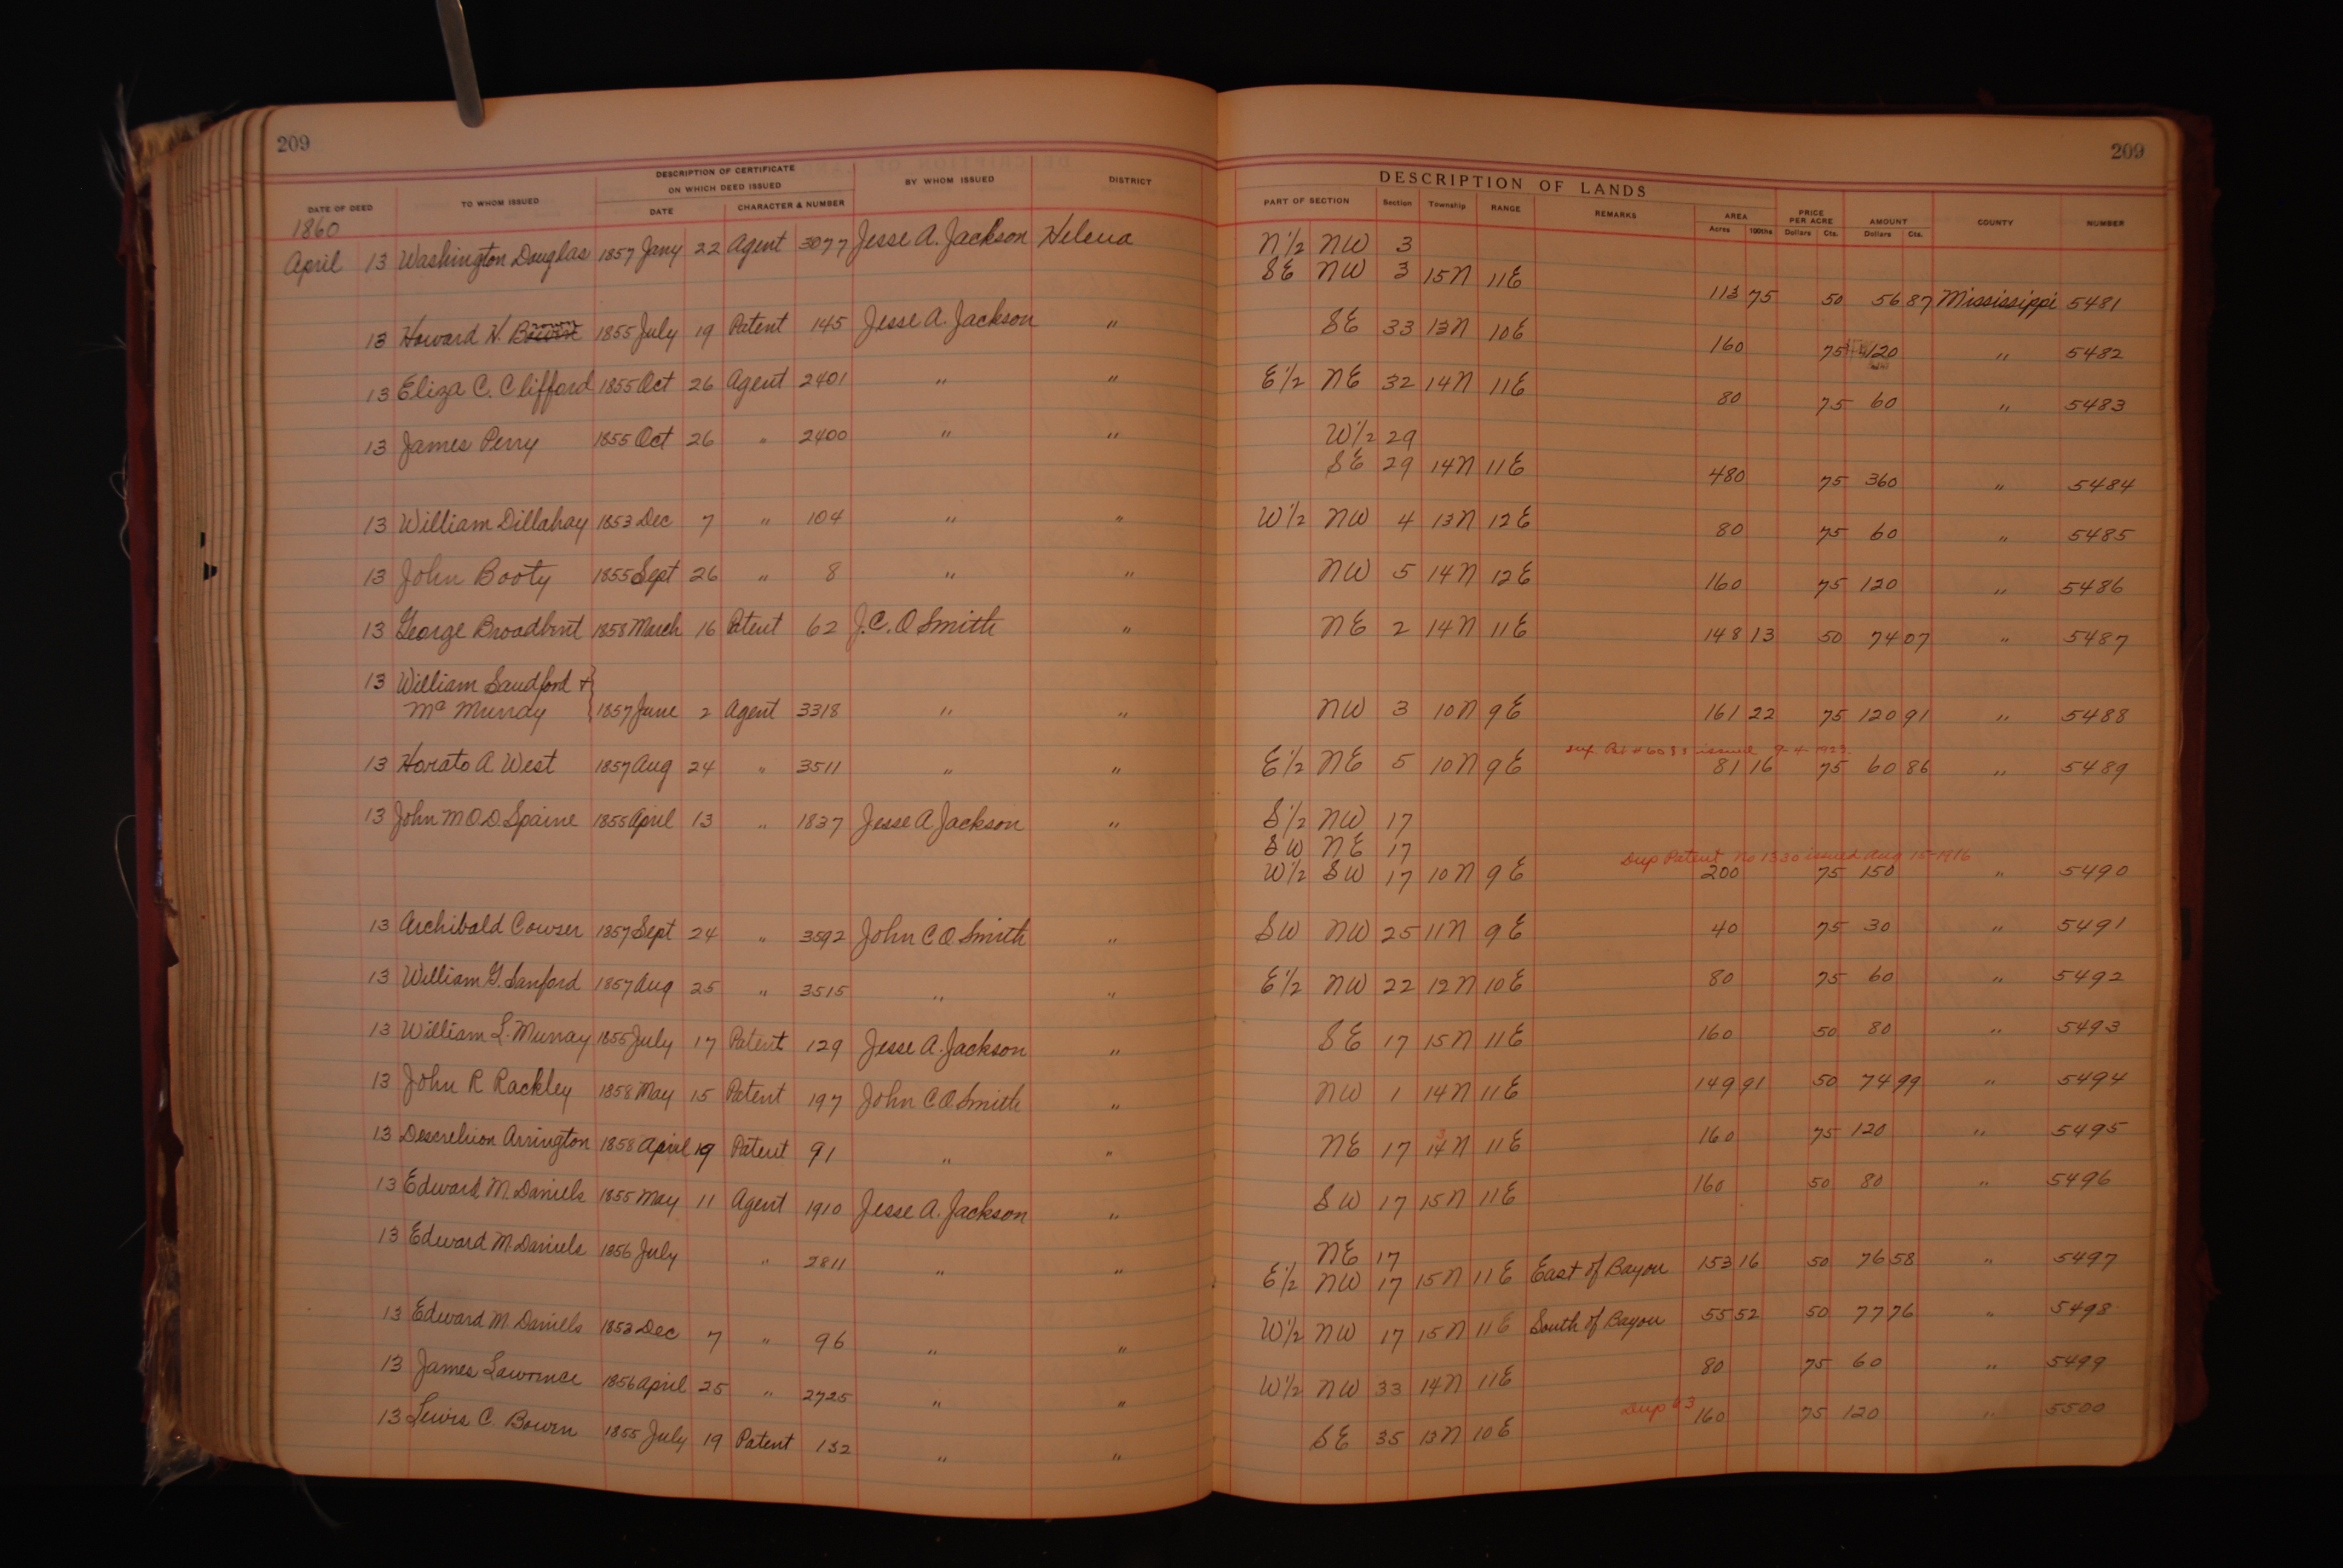 209
209
DESCRIPTION OF CERTIFICATE
ON WHICH DEED ISSUED
BY WHOM ISSUED
DISTRICT
DATE OF DEED
TO WHOM ISSUED
DATE
CHARACTER & NUMBER
DESCRIPTION OF LANDS
PART OF SECTION
Section
Township
RANGE
REMARKS
AREA
Acres
100ths
PRICE PER ACRE
Dollars
Cts.
AMOUNT
Dollars
Cts.
COUNTY
NUMBER
1860
April 13 Washington Douglas 1857 Jany 22 Agent 3077 Jesse A. Jackson Helena N 1/2 NW 3
SE NW 3 15N 11E
113 75 50 56 87 Mississippi 5481
13 Howard H. 1855 July 19 Patent 145 Jesse A. Jackson " SE 33 13N 10E
160 75 120 " 5482
13 Eliza C. Clifford 1855 Oct 26 Agent 2401 " " E 1/2 NE 32 14N 11E
80 75 60 " 5483
13 James Perry 1855 Oct 26 " 2400 " " W 1/2 29
SE 29 14N 11E
480 75 360 " 5484
13 William Dillahay 1853 Dec 7 " 104 " " W 1/2 NW 4 13N 12E
80 75 60 " 5485
13 John Booty 1855 Sept 26 " 8 " " NW 5 14N 12E
160 75 120 " 5486
13 George Broadbent 1858 March 16 Patent 62 J. C. O Smith " NE 2 14N 11E
148 13 50 74 07 " 5487
13 William Sandford &
Mc Murray 1857 June 2 Agent 3318 " " NW 3 10N 9E 161 22 75 120 91 " 5488
issued 9-4-1923.
13 Horato A West 1857 Aug 24 " 3511 " " E 1/2 NE 5 10N 9E 81 16 75 60 86 " 5489
13 John M O. D. Spaine 1855 April 13 " 1837 Jesse A Jackson " S 1/2 NW 17
SW NE 17
Dup Patent No 1330 issued Aug 15-1916
W 1/2 SW 17 10N 9E 200 75 150 " 5490
13 Archibald Cowser 1857 Sept 24 " 3592 John C O Smith " SW NW 25 11N 9E 40 75 30 " 5491
13 William G. Sanford 1857 Aug 25 " 3515 " " E 1/2 NW 22 12N 10E 80 75 60 " 5492
13 William L. Murray 1855 July 17 Patent 129 Jesse A. Jackson " SE 17 15N 11E 160 50 80 " 5493
13 John R Rackley 1858 May 15 Patent 197 John C O Smith " NW 1 14N 11E 149 91 50 74 99 " 5494
13 Descrelion Arrington 1858 April 19 Patent 91 " " NE 17 14N 11E 160 75 120 " 5495
13 Edward M. Daniels 1855 May 11 Agent 1910 Jesse A. Jackson " SW 17 15N 11E 160 50 80 " 5496
13 Edward M. Daniels 1856 July " 2811 " " NE 17
E 1/2 NW 17 15N 11E East of Bayou 153 16 50 76 58 " 5497
13 Edward M. Daniels 1853 Dec 7 " 96 " " W 1/2 NW 17 15N 11E South of Bayou 55 52 50 77 76 " 5498
13 James Lawrence 1856 April 25 " 2725 " " W 1/2 NW 33 14N 11E 80 75 60 " 5499
Dup
13 Lewis C. Bowen 1855 July 19 Patent 132 " " SE 35 13N 10E 160 75 120 " 5500